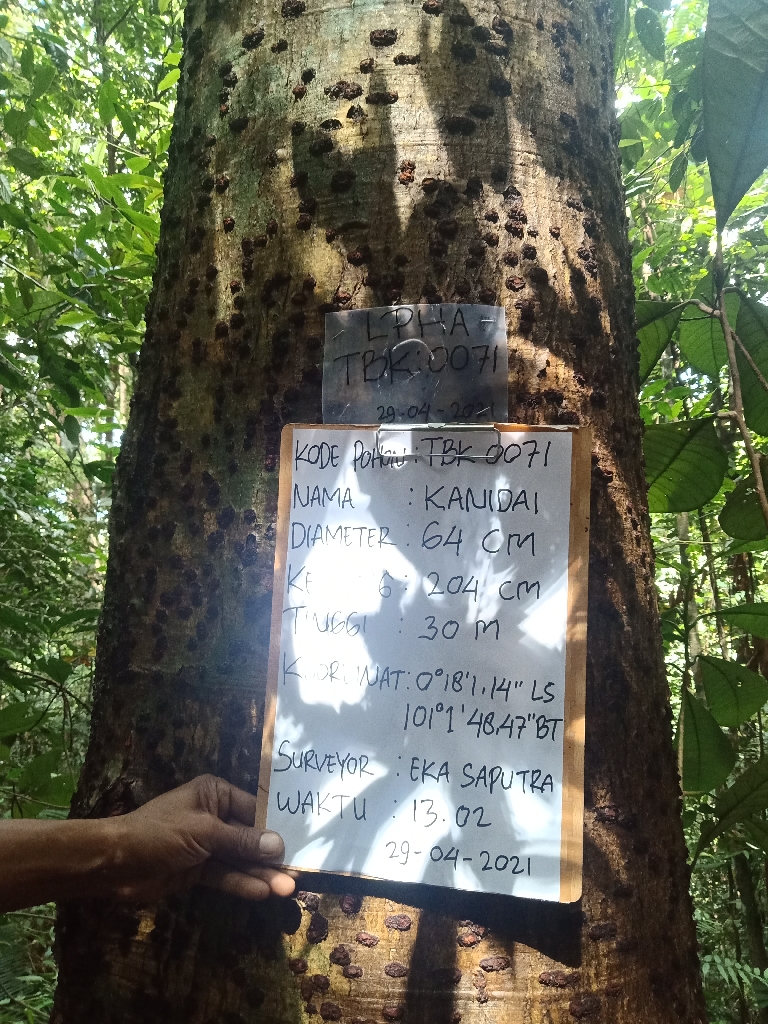 - LPHA -
TBK:0071
29-04-2021
KODE POHON : TBK 0071
NAMA : KANIDAI
DIAMETER : 64 CM
: 204 CM
TINGGI : 30 M
KOORDINAT : 0°18'1,14" LS
101°1'48,47" BT
SURVEYOR : EKA SAPUTRA
WAKTU : 13.02
29-04-2021